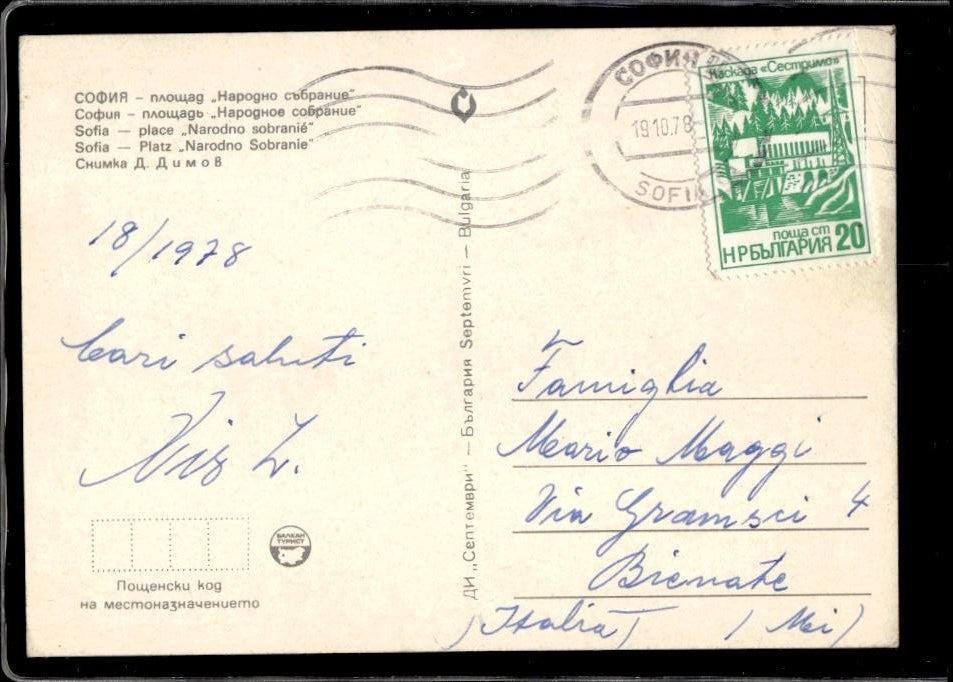 СОФИЯ – площад „Народно събрание"
София – площадь „Народное собрание"
Sofia — place „Narodno sobranié"
Sofia — Platz „Narodno Sobranie"
Снимка Д. Димов
18/1978
Cari saluti
ДИ „Септември" — България Septemvri — Bulgaria
СОФИЯ
19.10.78
SOFIA
Каскада «Сестримо»
поща ст
НР БЪЛГАРИЯ 20
Famiglia
Mario Maggi
Via Gramsci 4
Bienate
(Italia) (Mi)
БАЛКАН
ТУРИСТ
Пощенски код
на местоназначението